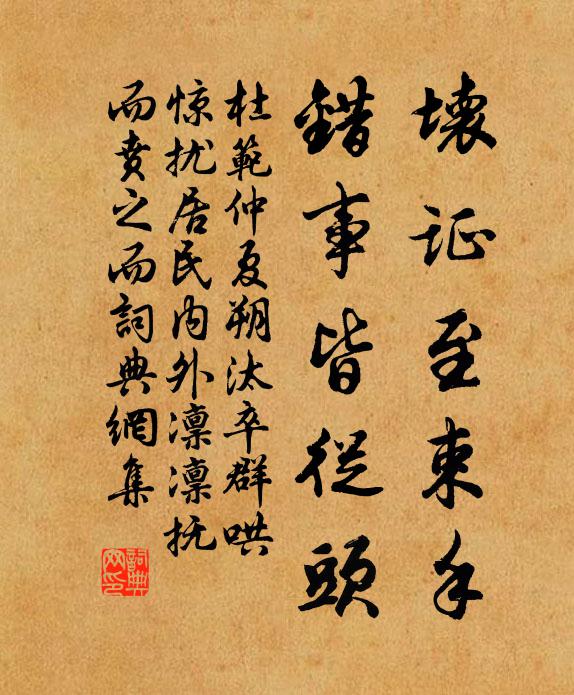 壞证至束手
錯事皆從頭
杜範仲夏朔汰卒群哄
惊扰居民内外凛凛抚
而賁之而詞典網集
詞典
网印